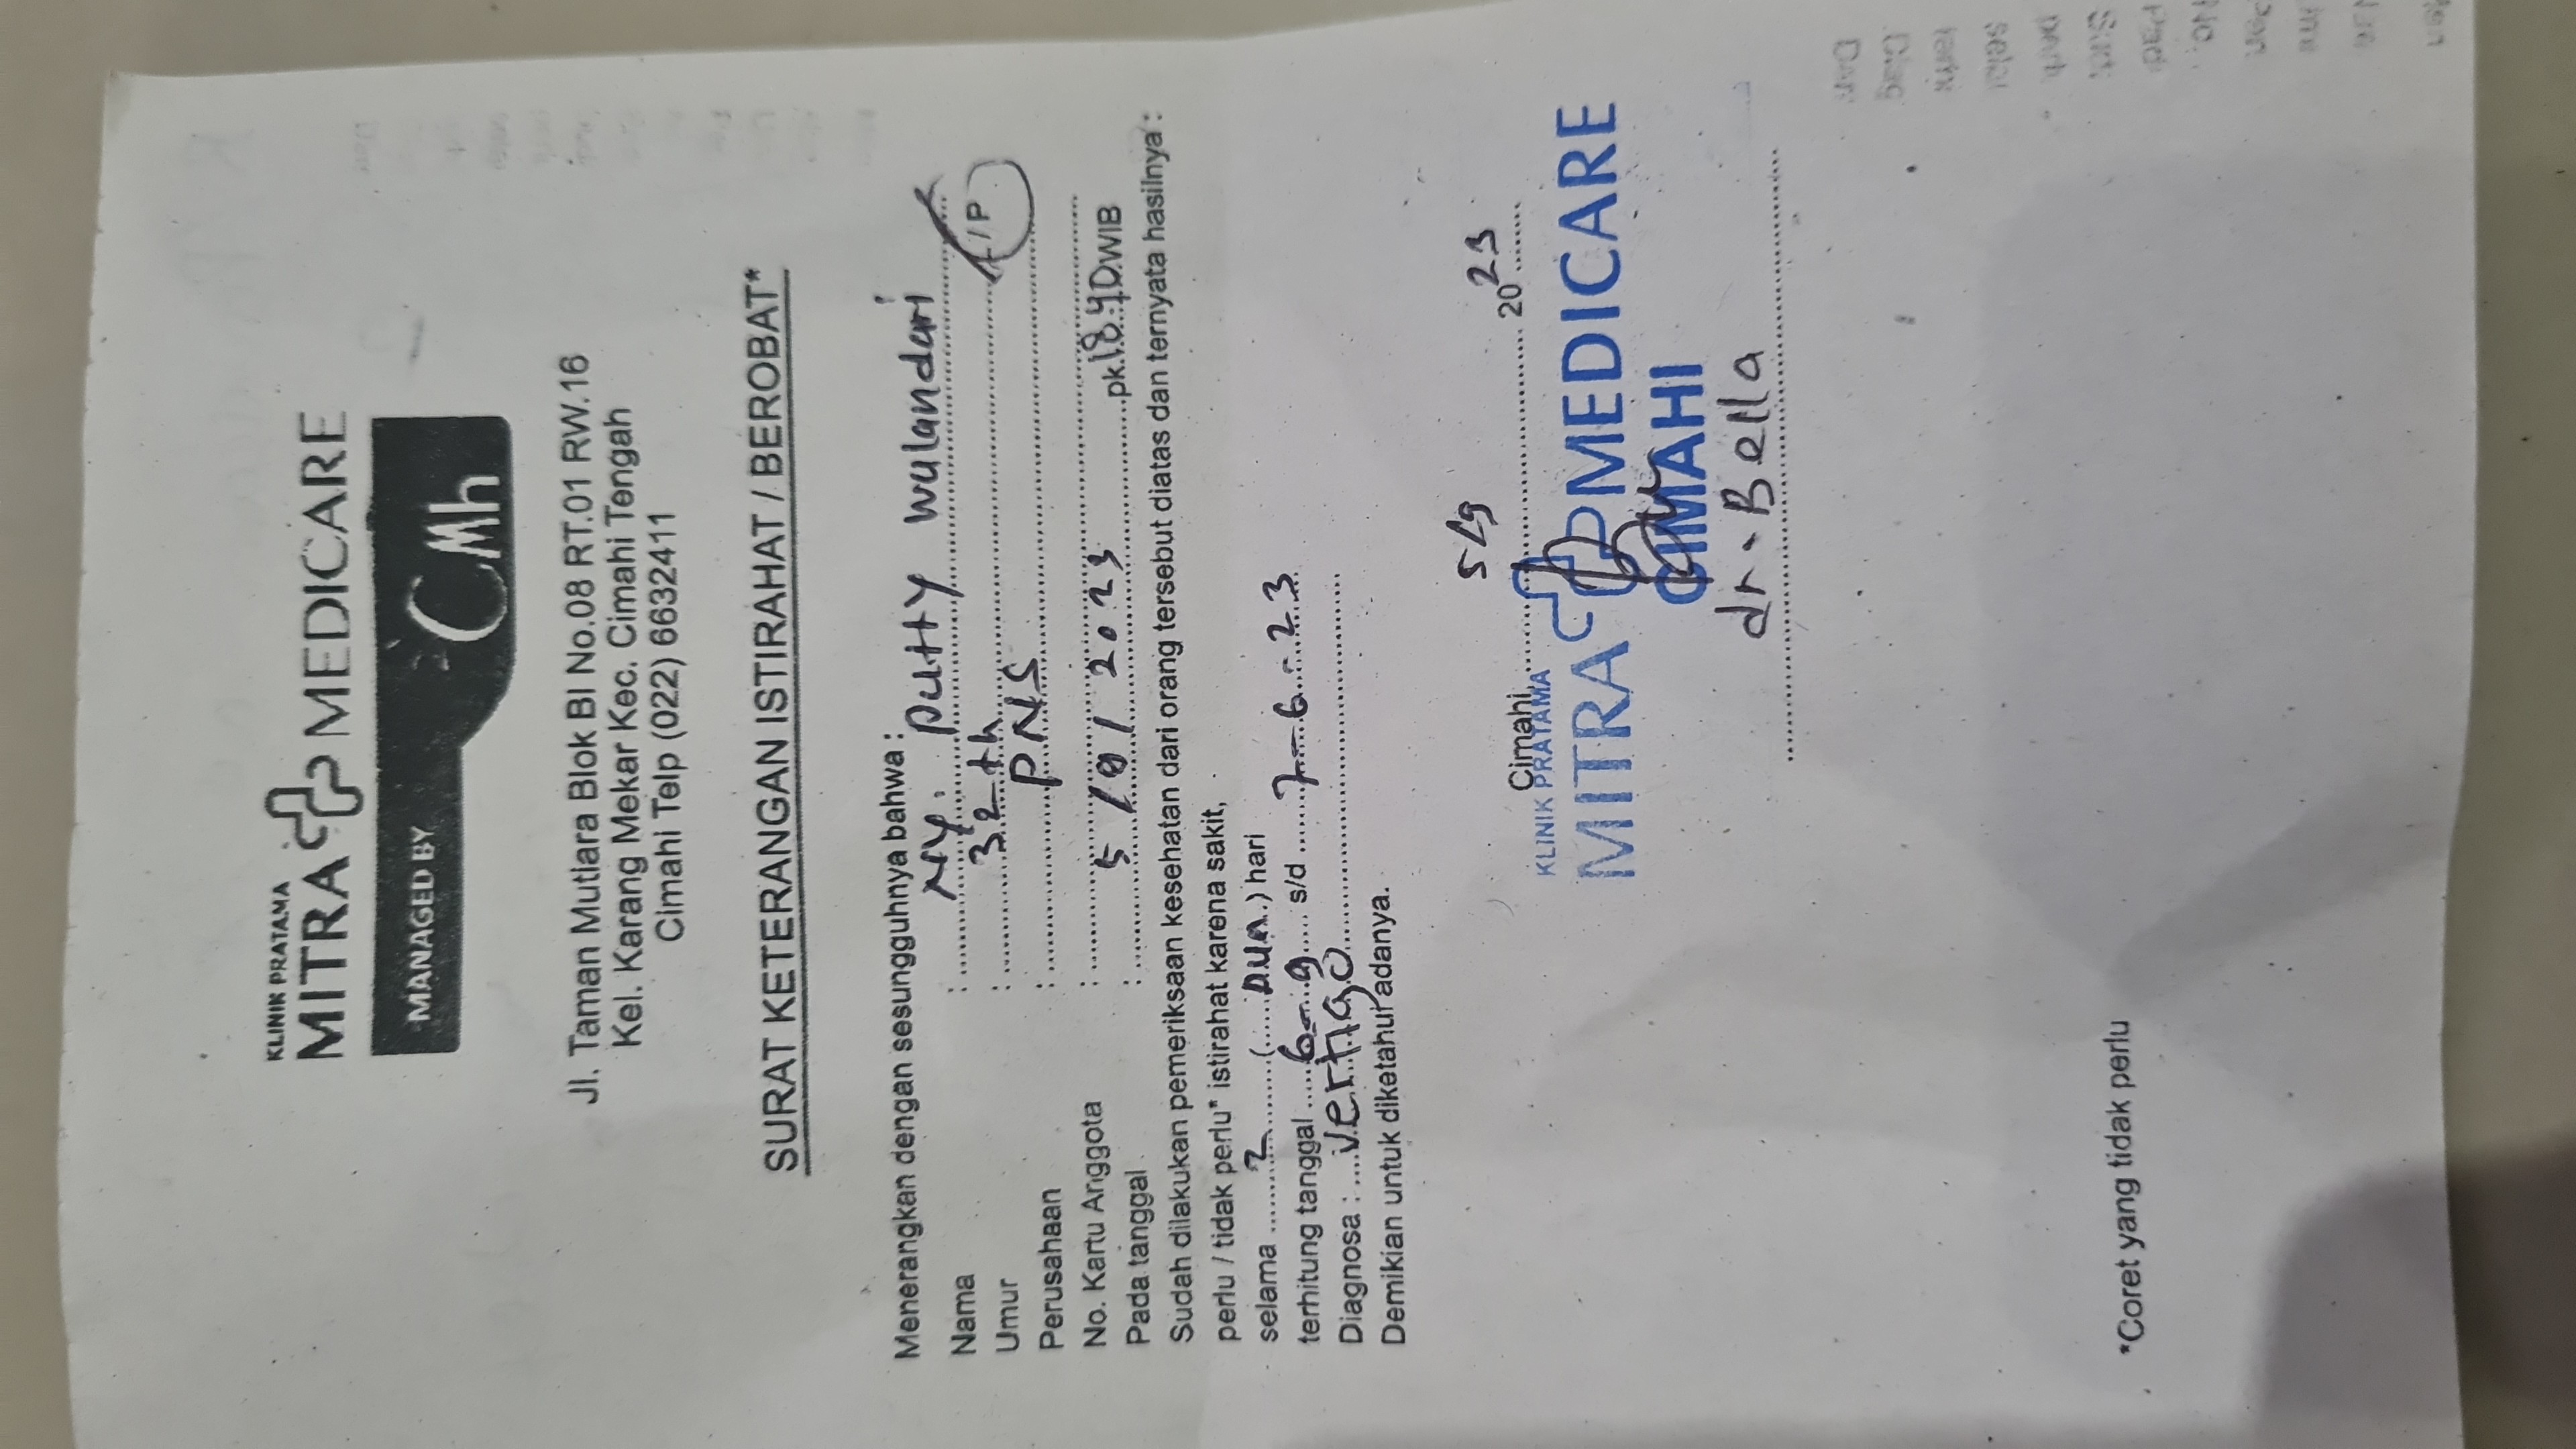 KLINIK PRATAMA
MITRA MEDICARE
MANAGED BY CMh
Jl. Taman Mutiara Blok BI No.08 RT.01 RW.16
Kel. Karang Mekar Kec. Cimahi Tengah
Cimahi Telp (022) 6632411
SURAT KETERANGAN ISTIRAHAT / BEROBAT*
Menerangkan dengan sesungguhnya bahwa :
Nama : Ny. Putty Wulandari
Umur : 32 th L/P
Perusahaan : PNS
No. Kartu Anggota :
Pada tanggal : 5/9/2023 pk. 18.40 WIB
Sudah dilakukan pemeriksaan kesehatan dari orang tersebut diatas dan ternyata hasilnya :
perlu / tidak perlu* istirahat karena sakit,
selama 2 (Dua) hari
terhitung tanggal 6-9 s/d 7-6-23
Diagnosa : Vertigo
Demikian untuk diketahui adanya.
Cimahi, 5/9 2023
KLINIK PRATAMA
MITRA MEDICARE
CIMAHI
dr. Bella
*Coret yang tidak perlu